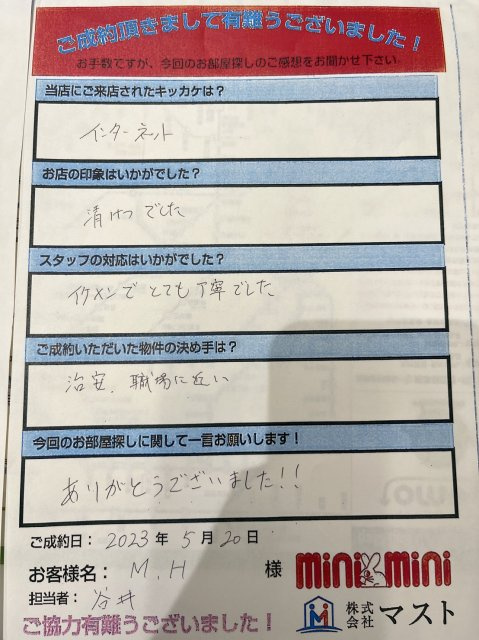 ご成約頂きまして有難うございました！
お手数ですが、今回のお部屋探しのご感想をお聞かせ下さい。
当店にご来店されたキッカケは？
インターネット
お店の印象はいかがでした？
清けつでした
スタッフの対応はいかがでした？
イケメンでとても丁寧でした
ご成約いただいた物件の決め手は？
治安、職場に近い
今回のお部屋探しに関して一言お願いします！
ありがとうございました!!
ご成約日：2023年5月20日
お客様名：M.H 様
minimini
担当者：谷井
株式会社マスト
ご協力有難うございました！